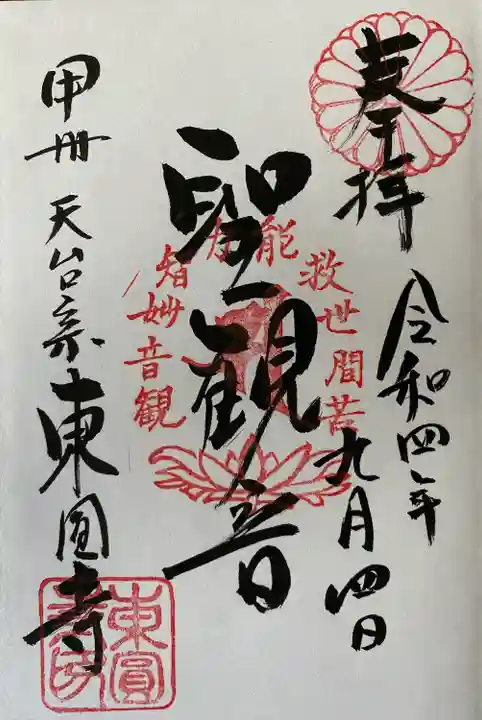 奉拝
令和四年
九月四日
聖観音
観音妙智力
能救世間苦
甲州 天台宗 東圓寺
東圓
寺印